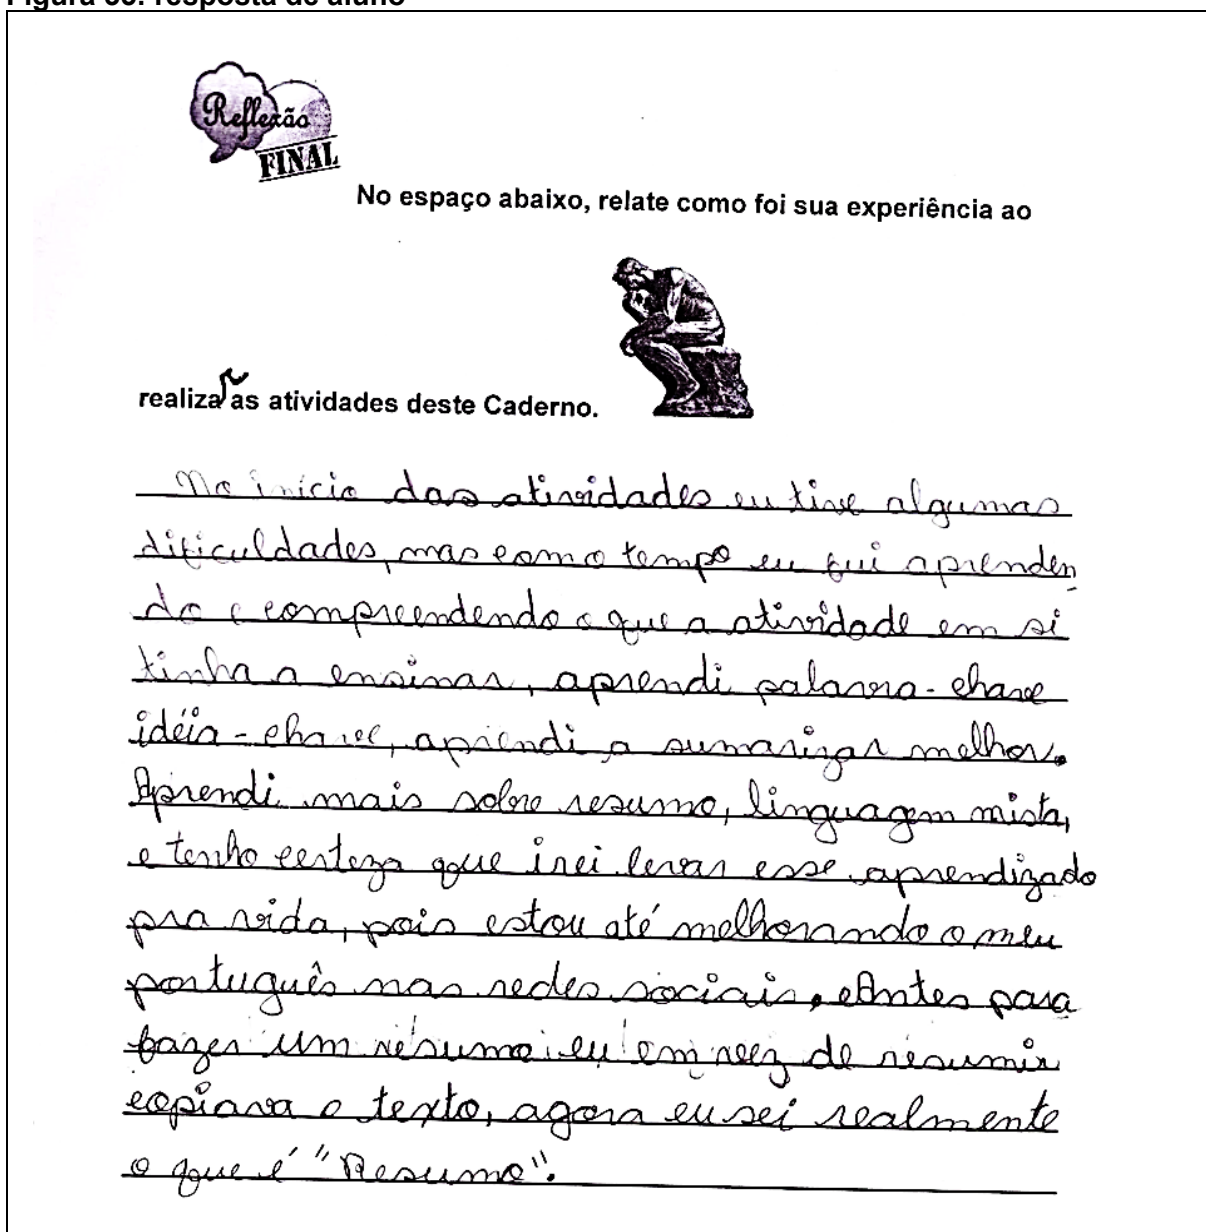 Reflexão
FINAL
No espaço abaixo, relate como foi sua experiência ao
realizar as atividades deste Caderno.
No início das atividades eu tive algumas
dificuldades, mas com o tempo eu fui aprenden
do e compreendendo o que a atividade em si
tinha a ensinar, aprendi palavra-chave
idéia-chave, aprendi a sumarizar melhor.
Aprendi mais sobre resumo, linguagem mista,
e tenho certeza que irei levar esse aprendizado
pra vida, pois estou até melhorando o meu
português nas redes sociais. Antes para
fazer um resumo eu em vez de resumir
copiava o texto, agora eu sei realmente
o que é "Resumo".